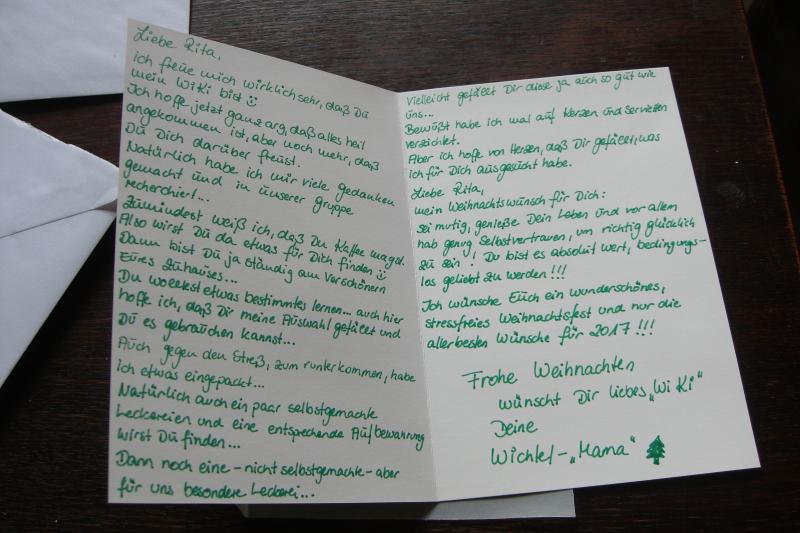 Liebe Rita,
ich freue mich wirklich sehr, daß Du
mein Wiki bist
Ich hoffe jetzt ganz arg, daß alles heil
angekommen ist, aber noch mehr, daß
Du Dich darüber freust.
Natürlich habe ich mir viele Gedanken
gemacht und in unserer Gruppe
recherchiert...
Zumindest weiß ich, daß Du Kaffee magst.
Also wirst Du da etwas für Dich finden
Dann bist Du ja ständig am Verschönern
Eures Zuhauses...
Du wolltest etwas bestimmtes lernen... auch hier
hoffe ich, daß Dir meine Auswahl gefällt und
Du es gebrauchen kannst...
Auch gegen den Streß, zum runterkommen, habe
ich etwas eingepackt...
Natürlich auch ein paar selbstgemachte
Leckereien und eine entsprechende Aufbewahrung
wirst Du finden...
Dann noch eine - nicht selbstgemachte - aber
für uns besondere Leckerei...
Vielleicht gefällt Dir diese ja auch so gut wie
uns...
Bewußt habe ich mal auf Kerzen und Servietten
verzichtet.
Aber ich hoffe von Herzen, daß Dir gefällt, was
ich für Dich ausgesucht habe.
Liebe Rita,
mein Weihnachtswunsch für Dich:
Sei mutig, genieße Dein Leben und vor allem
hab genug Selbstvertrauen, um richtig glücklich
zu sein! Du bist es absolut wert, bedingungs-
los geliebt zu werden!!!
Ich wünsche Euch ein wunderschönes,
stressfreies Weihnachtsfest und nur die
allerbesten Wünsche für 2017!!!
Frohe Weihnachten
wünscht Dir liebes „Wi Ki"
Deine
Wichtel-„Mama"